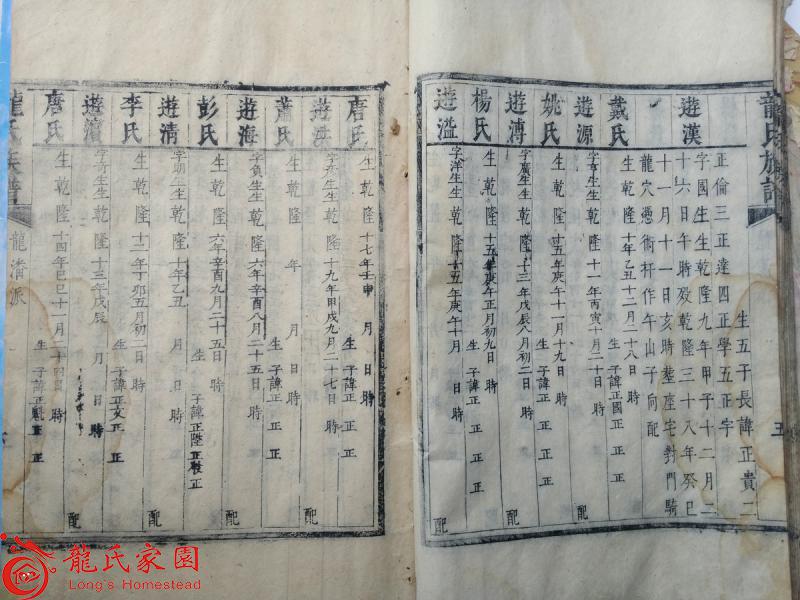 龍氏族譜
五
生五子長諱正貴二
正倫三正達四正學五正字
遊漢
字國生生乾隆九年甲子十二月二
十六日午時殁乾隆三十八年癸巳
十一月十一日亥時塟座宅對門騎
龍穴憑術杆作午山子向配
戴氏
生乾隆十年乙丑十二月二十八日時 生子諱正國正正正
遊源
字亨生生乾隆十一年丙寅十月二十日時 配
姚氏
生乾隆十五年庚午十一月十九日時 生子諱正正正正
遊溥
字廣生生乾隆十三年戊辰八月初二日時 配
楊氏
生乾隆十五年庚午正月初九日時 生子諱正正正正
遊溢
字洋生生乾隆十五年庚午十月日時 配
唐氏
生乾隆十七年壬申月日時 生子諱正正正正
遊
生乾隆十九年甲戌九月二十七日時 配
蕭氏
生乾隆年月日時 生子諱正正正正
遊海
字負生生乾隆六年辛酉八月二十五日時 配
彭氏
生乾隆六年辛酉九月二十五日時 生子諱正陞正正
遊清
生生乾隆十年乙丑月日時 配
李氏
生乾隆十二年丁卯五月初二日時 生子諱正文正正
遊
生生乾隆十三年戊辰月日時 配
唐氏
生乾隆十四年己巳十一月二十四日時 生子諱正正正
龍氏族譜
龍 派
龍氏家園
Long's Homestead